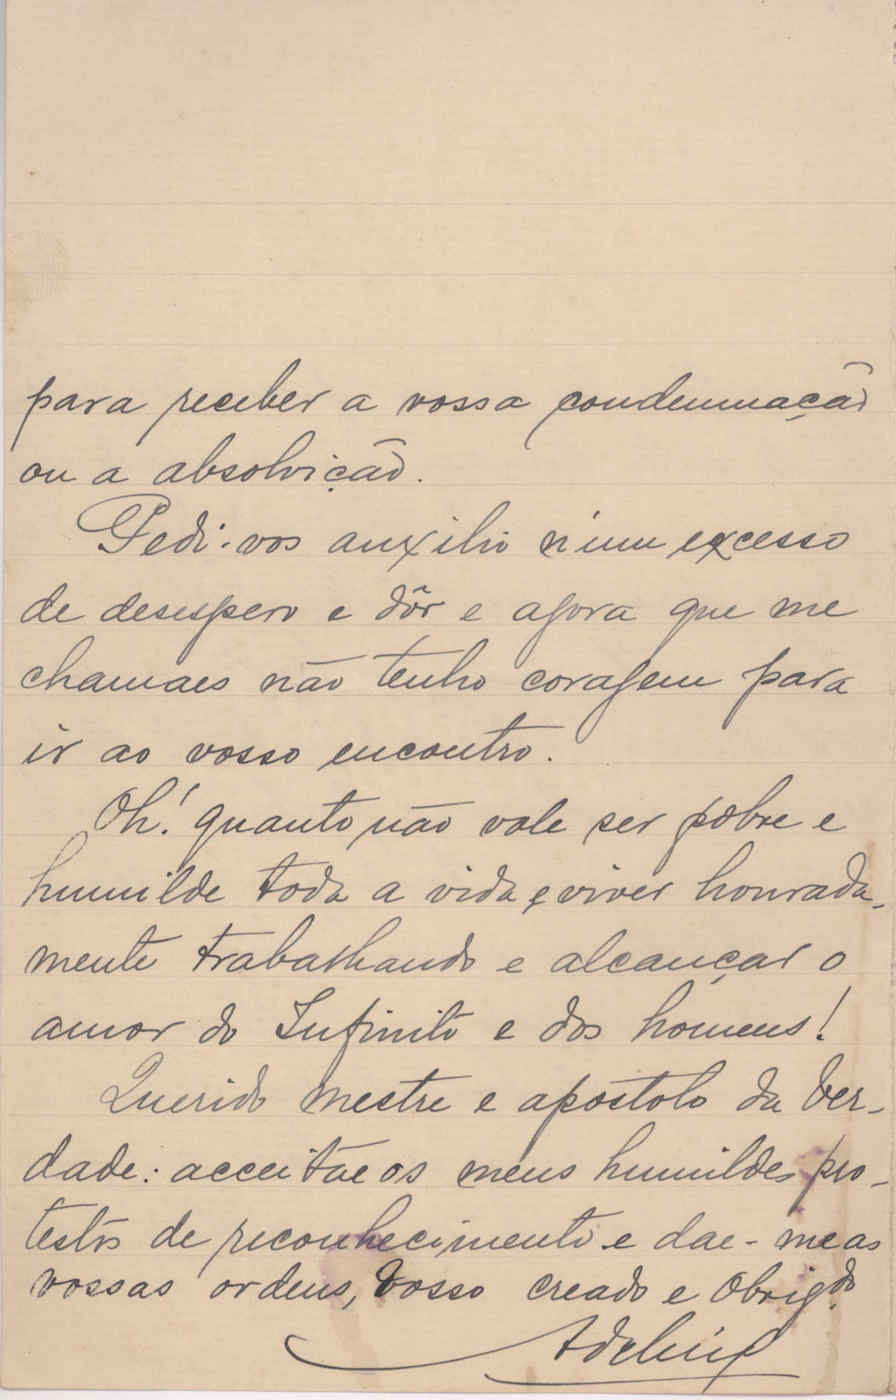 para receber a vossa condemnação
ou a absolvição.
Pedi-vos auxilio n'um excesso
de desespero e dôr e agora que me
chamaes não tenho coragem para
ir ao vosso encontro.
Oh! quanto não vale ser pobre e
humilde toda a vida e viver honrada-
mente trabalhando e alcançar o
amor do Infinito e dos homens!
Querido mestre e apostolo da Ver-
dade: acceitae os meus humildes pro-
testos de reconhecimento e dae-me as
vossas ordens, Vosso creado e Obrigdo.